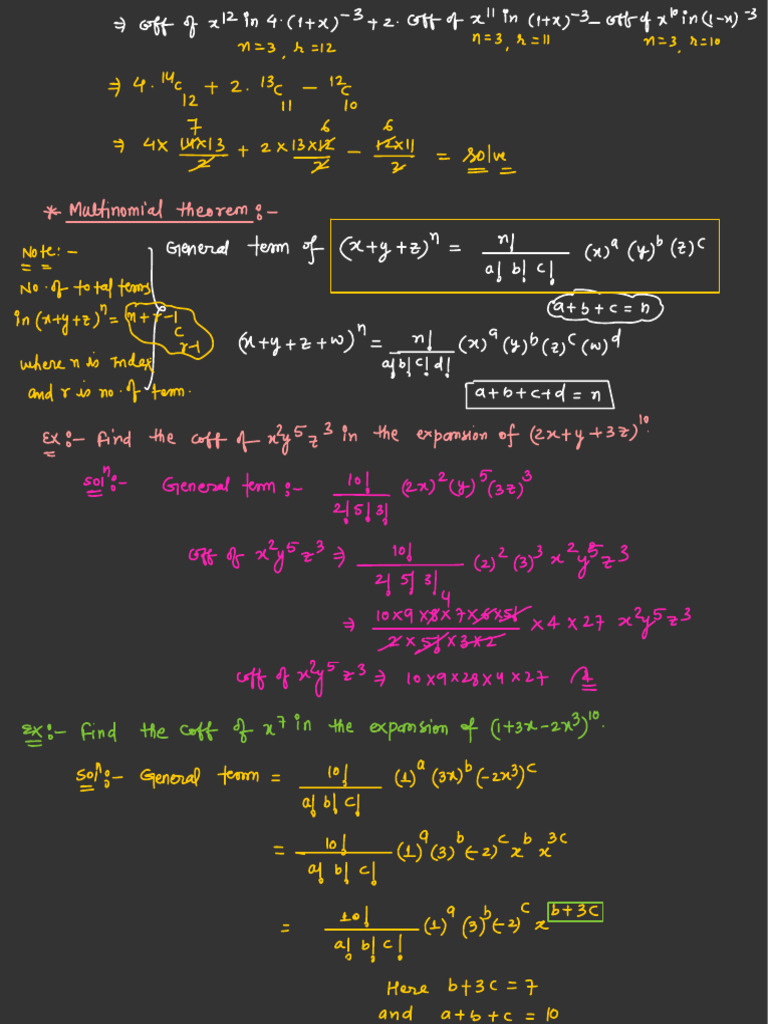 ⇒ coff of x¹² in 4·(1+x)⁻³ + 2· coff of x¹¹ in (1+x)⁻³ – coff of x¹⁰ in (1-x)⁻³
n=3, r=12 n=3, r=11 n=3, r=10
⇒ 4·¹⁴C₁₂ + 2·¹³C₁₁ – ¹²C₁₀
7 6 6
⇒ 4× 14×13/2 + 2× 13×12/2 – 12×11/2 = Solve
* Multinomial theorem:-
Note:-
General term of (x+y+z)ⁿ = n!/(a! b! c!) (x)ᵃ (y)ᵇ (z)ᶜ
No. of total terms
a+b+c=n
in (x+y+z)ⁿ = n+r-1 C r-1
(x+y+z+w)ⁿ = n!/(a! b! c! d!) (x)ᵃ (y)ᵇ (z)ᶜ (w)ᵈ
where n is Index
and r is no. of term.
a+b+c+d=n
Ex:- find the coff of x²y⁵z³ in the expansion of (2x+y+3z)¹⁰.
Solⁿ:- General term:- 10!/(2! 5! 3!) (2x)² (y)⁵ (3z)³
Coff of x²y⁵z³ ⇒ 10!/(2! 5! 3!) (2)² (3)³ x²y⁵z³
4
⇒ 10×9×8×7×6×5!/(2×5!×3×2) ×4×27 x²y⁵z³
coff of x²y⁵z³ ⇒ 10×9×28×4×27
Ex:- find the coff of x⁷ in the expansion of (1+3x-2x³)¹⁰.
Solⁿ:- General term = 10!/(a! b! c!) (1)ᵃ (3x)ᵇ (-2x³)ᶜ
= 10!/(a! b! c!) (1)ᵃ (3)ᵇ (-2)ᶜ xᵇ x³ᶜ
= 10!/(a! b! c!) (1)ᵃ (3)ᵇ (-2)ᶜ x^(b+3c)
Here b+3c = 7
and a+b+c = 10